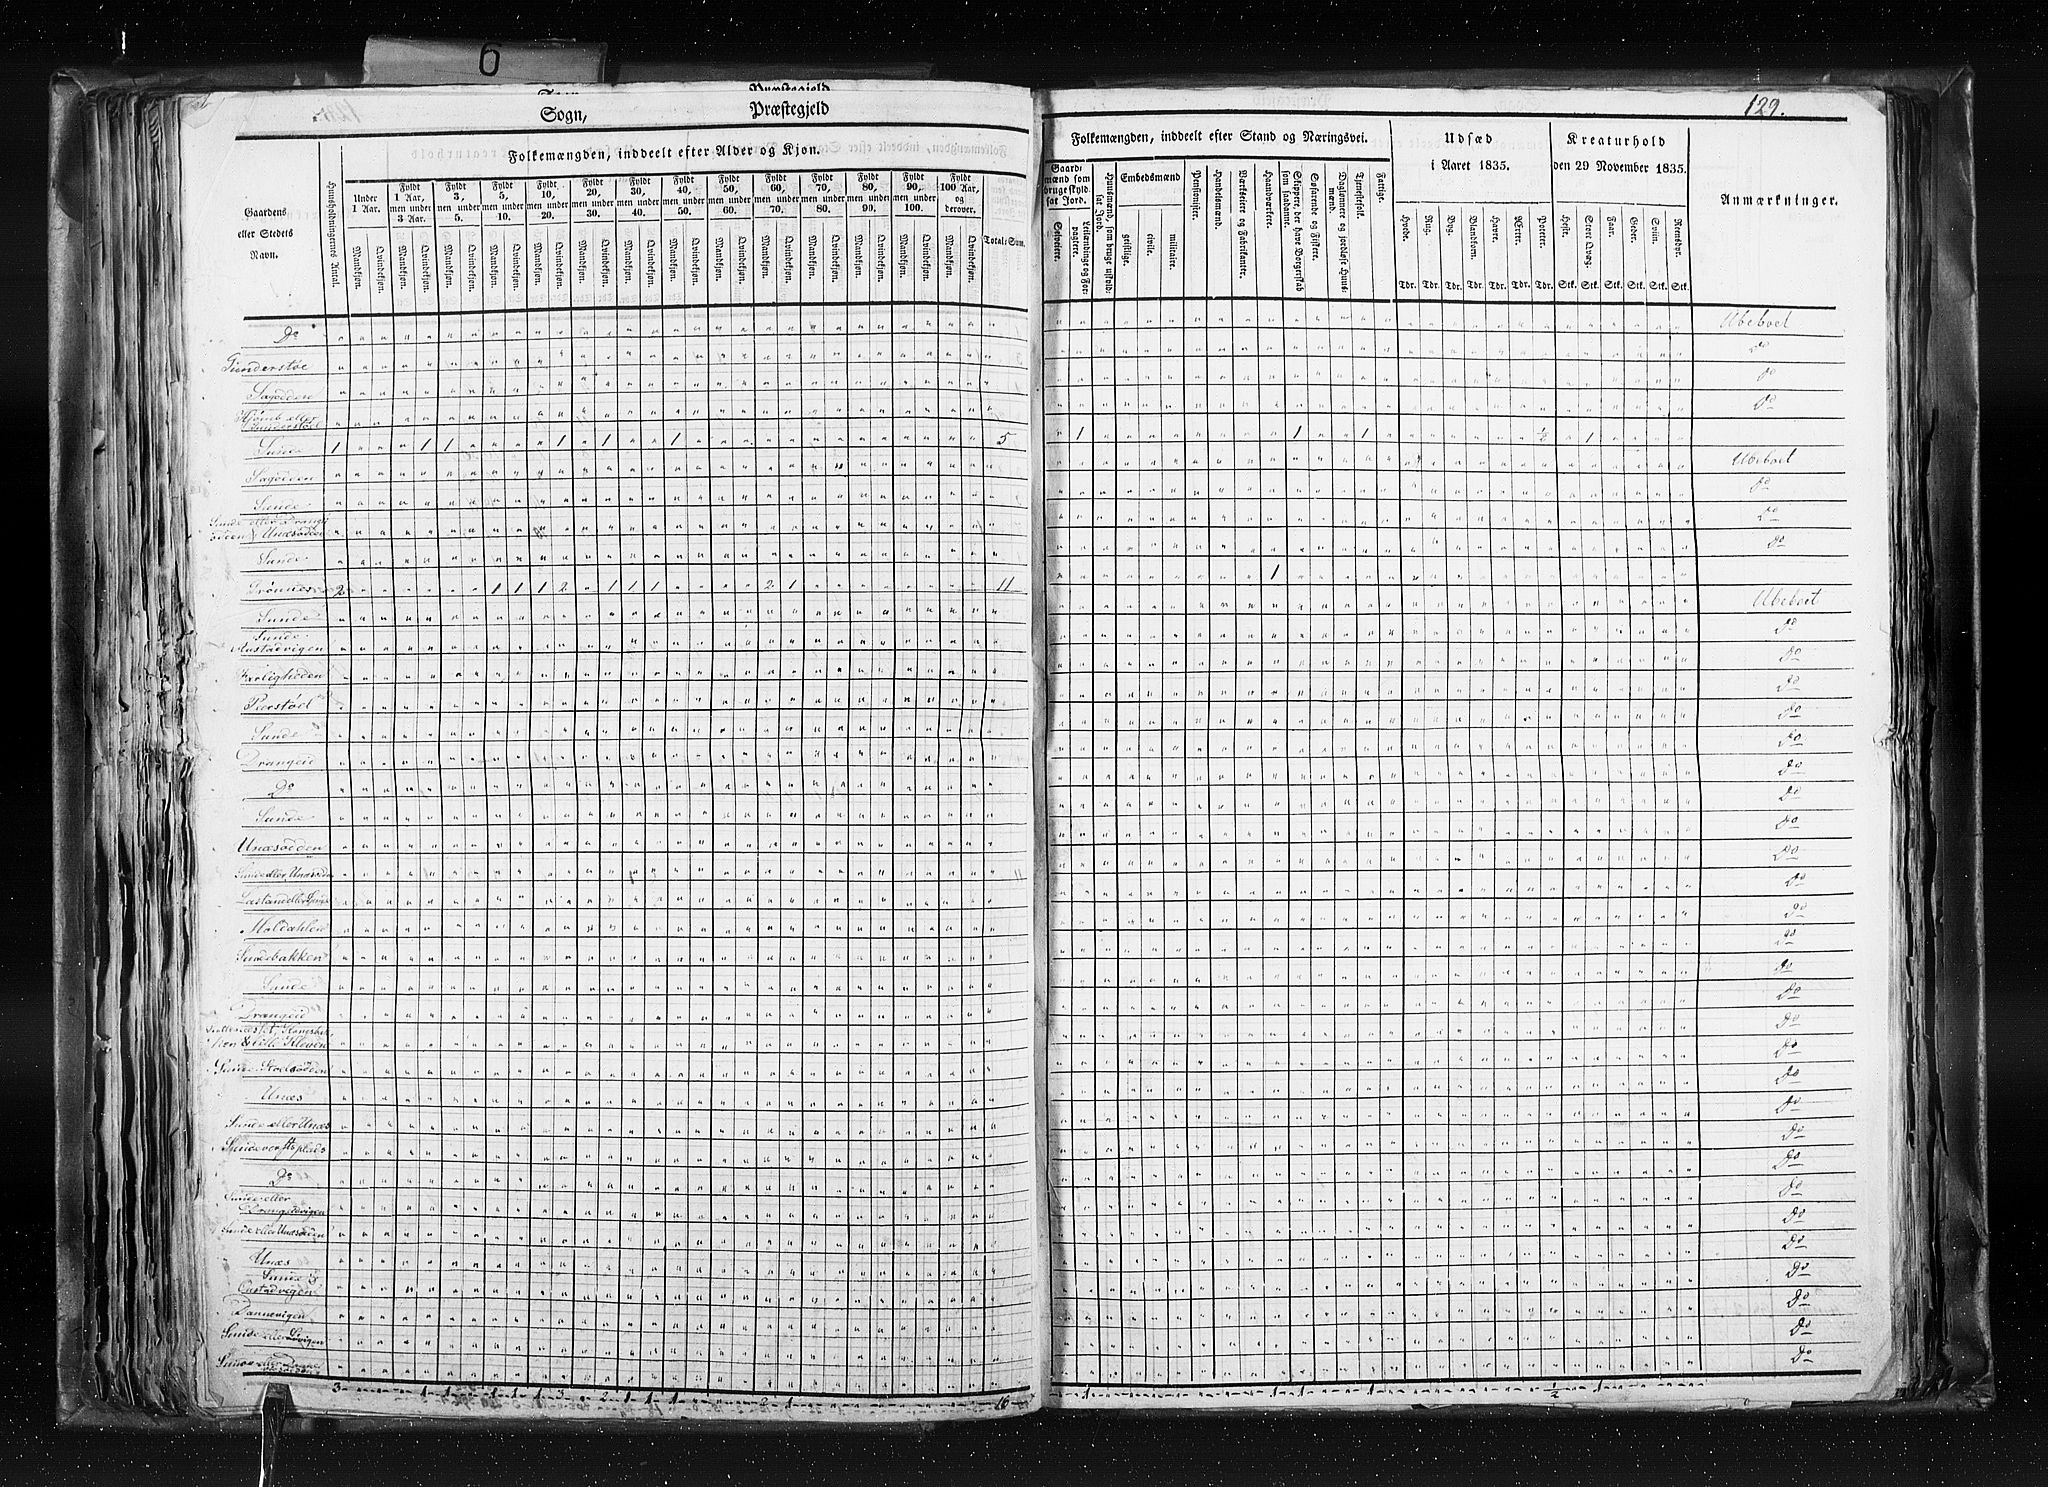 6
Sogn, Præstegjeld
Sogn, Præstegjeld
129.
Folkemængden, inddeelt efter Alder og Kjøn.
Folkemængden, inddeelt efter Stand og Næringsvei.
Udsæd i Aaret 1835.
Kreaturhold den 29 November 1835.
Anmærkninger.
Gaardens eller Stedets Navn.
Huusholdningernes Antal.
Under 1 Aar.
Fyldt 1 Aar, men under 3 Aar.
Fyldt 3, men under 5.
Fyldt 5, men under 10.
Fyldt 10, men under 20.
Fyldt 20, men under 30.
Fyldt 30, men under 40.
Fyldt 40, men under 50.
Fyldt 50, men under 60.
Fyldt 60, men under 70.
Fyldt 70, men under 80.
Fyldt 80, men under 90.
Fyldt 90, men under 100.
Fyldt 100 Aar, og derover.
Total-Sum.
Mandkjøn. Qvindekjøn. Mandkjøn. Qvindekjøn. Mandkjøn. Qvindekjøn. Mandkjøn. Qvindekjøn. Mandkjøn. Qvindekjøn. Mandkjøn. Qvindekjøn. Mandkjøn. Qvindekjøn. Mandkjøn. Qvindekjøn. Mandkjøn. Qvindekjøn. Mandkjøn. Qvindekjøn. Mandkjøn. Qvindekjøn. Mandkjøn. Qvindekjøn. Mandkjøn. Qvindekjøn. Mandkjøn. Qvindekjøn.
Gaardmænd som bruge skyldsat Jord.
Selveiere.
Leilændinge og Forpagtere.
Huusmænd, som bruge uskyldsat Jord.
Embedsmænd
geistlige. civile. militaire.
Pensionister.
Handelsmænd.
Værkseiere og Fabrikanter.
Haandværkere.
Skippere, der have Borgerskab som saadanne.
Søfarende og Fiskere.
Daglønnere og jordløse Huusmænd.
Tjenestefolk.
Fattige.
Hvede. Rug. Byg. Blandkorn. Havre. Erter. Poteter.
Tdr. Tdr. Tdr. Tdr. Tdr. Tdr. Tdr.
Heste. Stort Qvæg. Faar. Geder. Sviin. Reensdyr.
Stk. Stk. Stk. Stk. Stk. Stk.
Do Ubeboet
Do
Sagodden Do
Do
Sunde 1 1 1 1 1 1 5 1 1 1 ½ 1
Sagodden Ubeboet
Sunde Do
Sunde eller Drangsodden & Unæsodden Do
Sunde Do
2 1 1 1 2 1 1 1 2 1 11 1
Sunde Ubeboet
Sunde Do
Roligheden Do
Do
Sunde Do
Drangeid Do
Do Do
Sunde Do
Unæsodden Do
Sunde eller Unæsodn Do
Do
Moldahlen Do
Sundebakken Do
Sunde Do
Drangeid Do
Do
Do
Unæs Do
Sunde eller Unæs Do
Sunde verftsplads Do
Do Do
Sunde eller Drangsvigen Do
Sunde eller Unæsodden Do
Unæs Do
Sunde & Do
Dannevigen Do
Do
Do
3 1 1 1 1 1 3 2 1 1 1 2 1 16 1 1 1 1 ½ 1